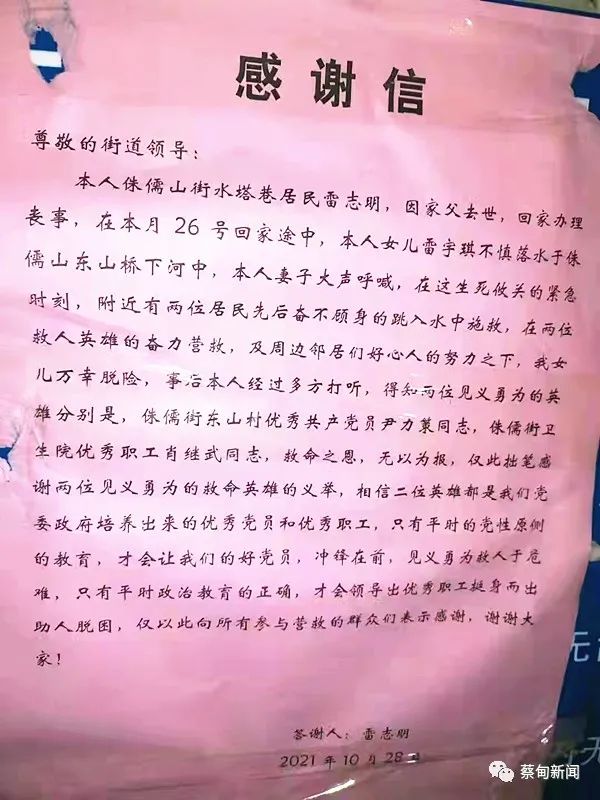 感谢信
尊敬的街道领导：
本人侏儒山街水塔巷居民雷志明，因家父去世，回家办理
丧事，在本月26号回家途中，本人女儿雷宇琪不慎落水于侏
儒山东山桥下河中，本人妻子大声呼喊，在这生死攸关的紧急
时刻，附近有两位居民先后奋不顾身的跳入水中施救，在两位
救人英雄的奋力营救，及周边邻居们好心人的努力之下，我女
儿万幸脱险，事后本人经过多方打听，得知两位见义勇为的英
雄分别是，侏儒街东山村优秀共产党员尹力策同志，侏儒街卫
生院优秀职工肖继武同志，救命之恩，无以为报，仅此拙笔感
谢两位见义勇为的救命英雄的义举，相信二位英雄都是我们党
委政府培养出来的优秀党员和优秀职工，只有平时的党性原则
的教育，才会让我们的好党员，冲锋在前，见义勇为救人于危
难，只有平时政治教育的正确，才会领导出优秀职工挺身而出
助人脱困，仅以此向所有参与营救的群众们表示感谢，谢谢大
家！
答谢人：雷志明
2021年10月28
无
无
蔡甸新闻